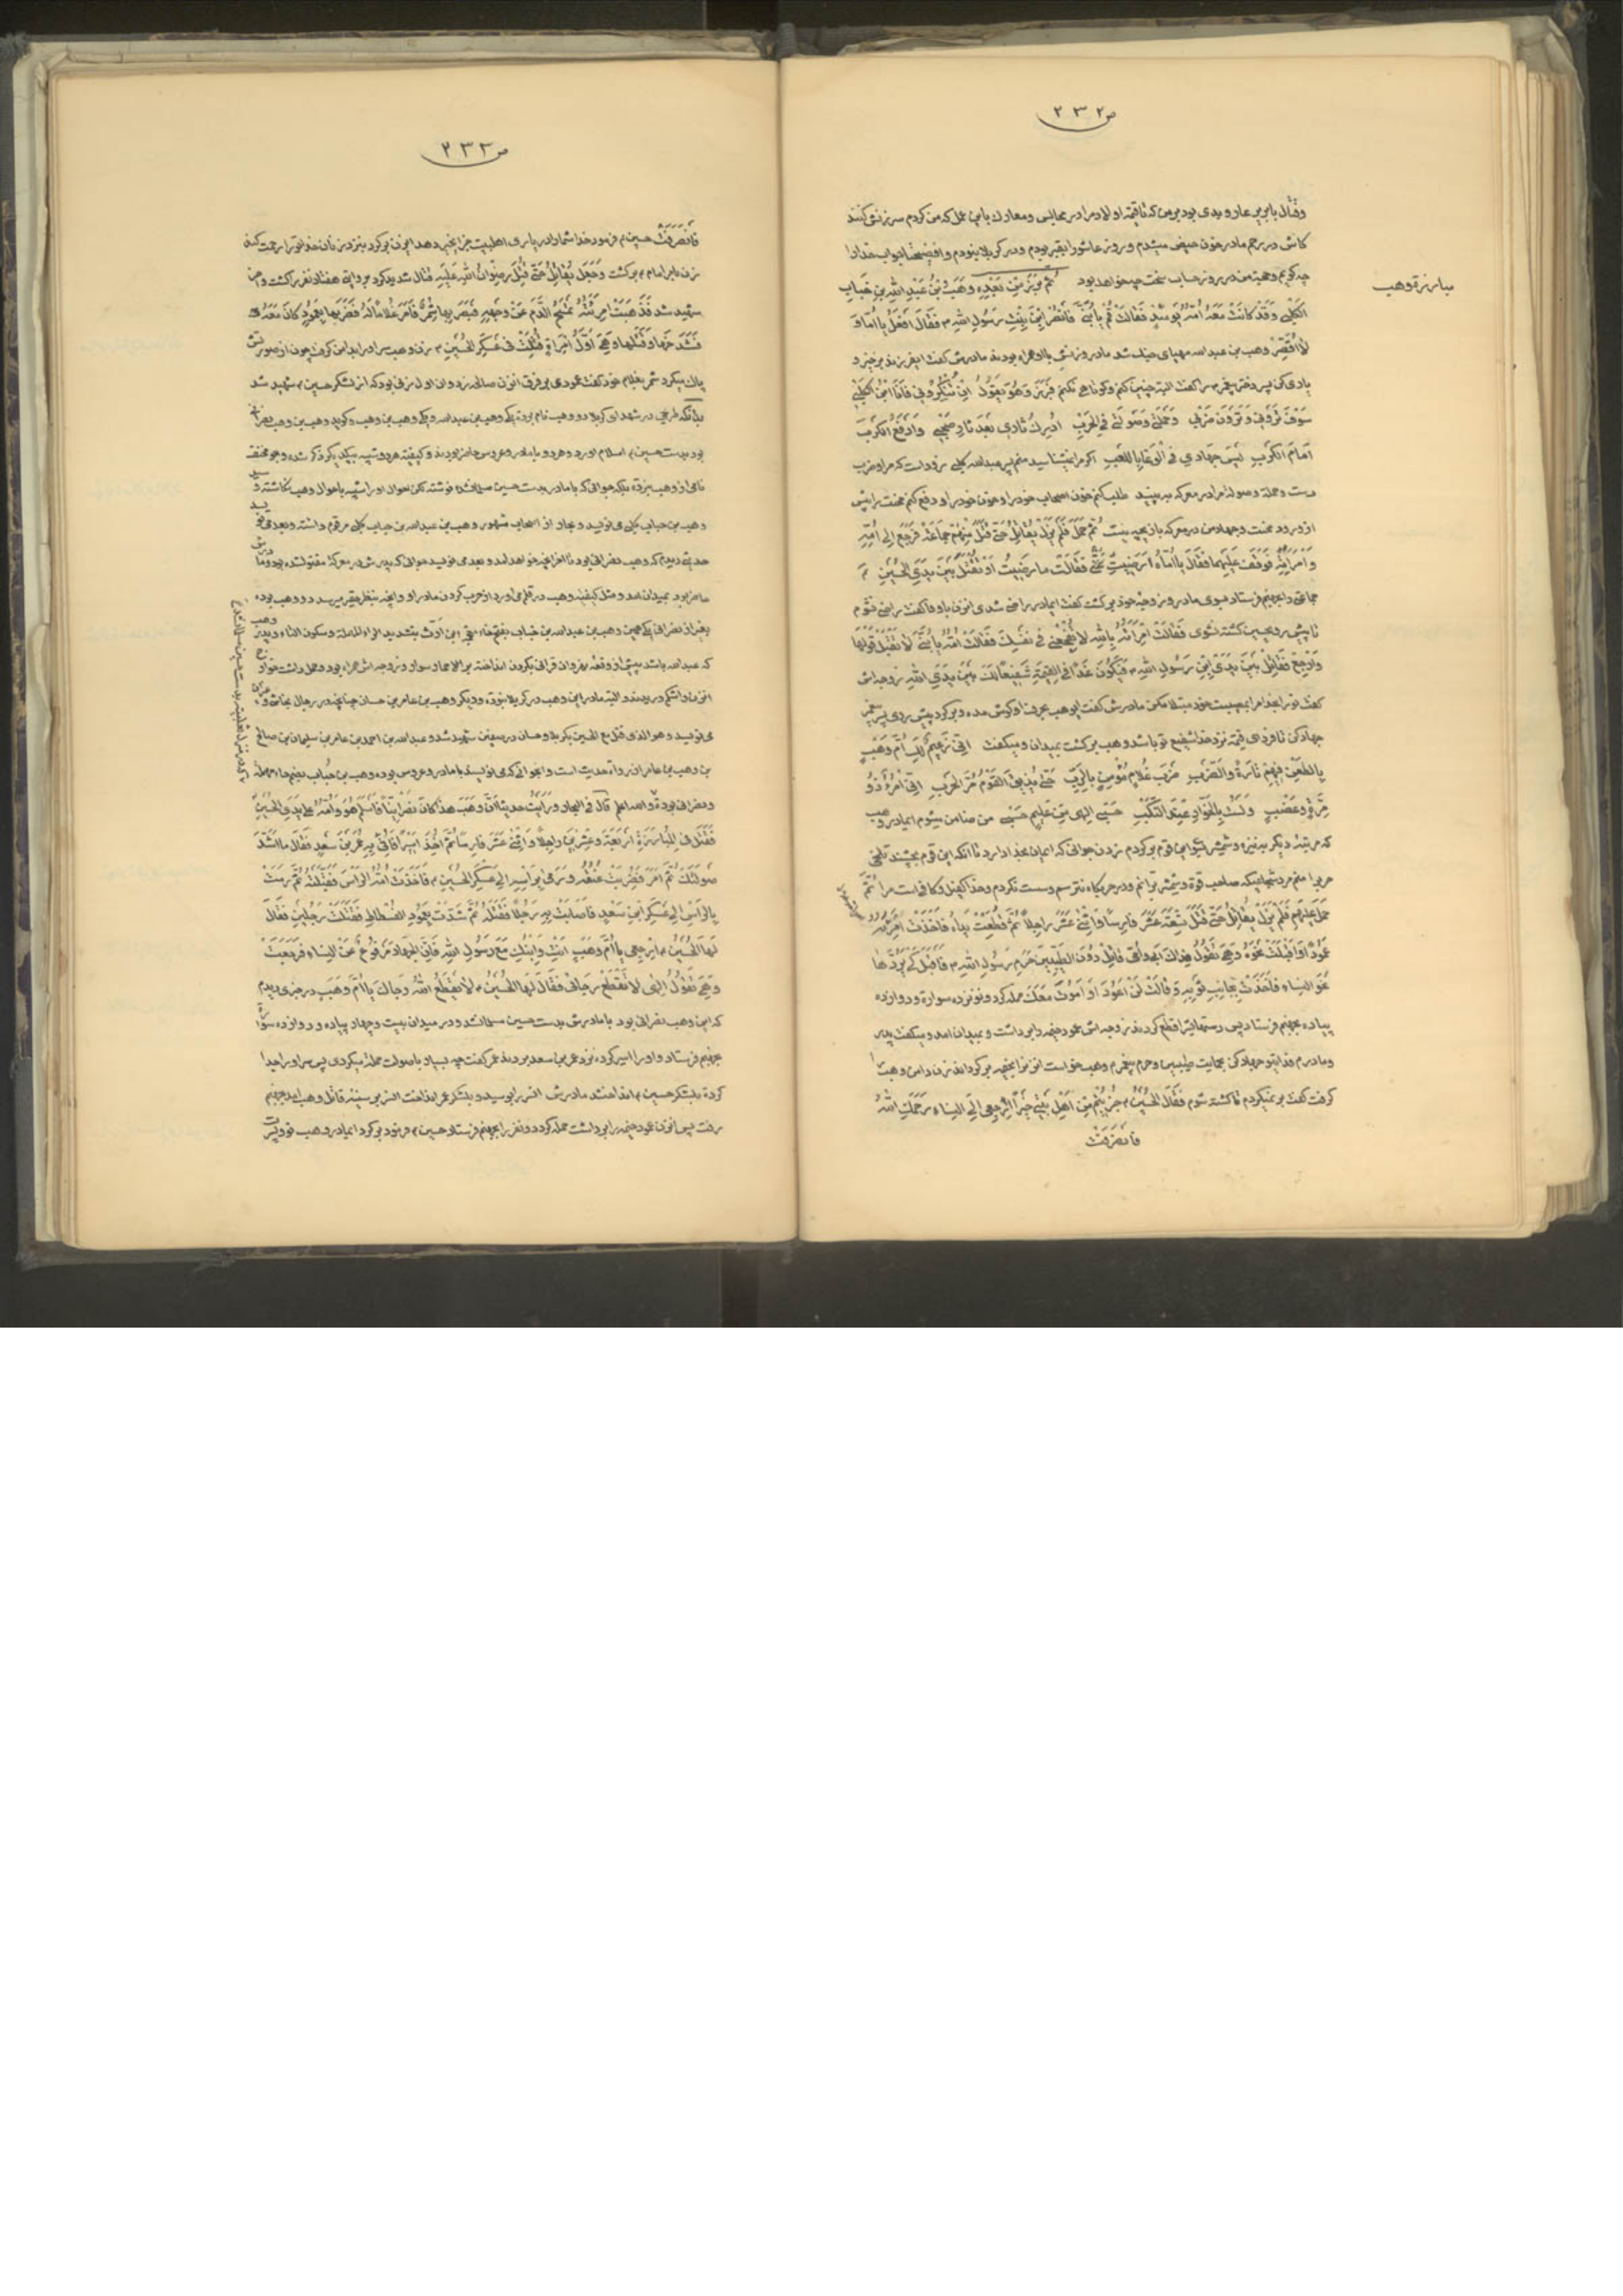 ص ۲۳۲
مبارزة وهب
وقتال با بریر عار و بدی بود بر من که تا قیمة اولاد مرا در مجالس ومعارك باین عمل که من کردم سرزنش کنند
کاش در رحم مادر خون حیض میشدم و روز عاشورا بقبر بودم و در کربلا نبودم وافضیحتا جواب خدا را
چه گویم وحجة من در روز حساب سخت چه خواهد بود ثُمَّ بَرَزَ مِنْ بَعْدِهِ وَهَبُ بْنُ عَبْدِ اللهِ بْنِ حُبَابٍ
الكَلْبِي وَقَدْ كَانَتْ مَعَهُ اُمُّهُ يَوْمَئِذٍ فَقَالَتْ قُمْ يَا بُنَيَّ فَانْصُرْ ابْنَ بِنْتِ رَسُولِ اللهِ ص فَقَالَ اَفْعَلُ يَا اُمّاهُ وَ
لا اُقَصِّرُ وهب بن عبد الله مهیای جنك شد مادر و زنش با او همراه بودند مادرش کفت ایفرزند برخیز و
یاری کن پسر دختر پیغمبر را کفت البته چنین کنم و کوتاهی نکنم فَبَرَزَ وَهُوَ يَقُولُ اِنْ تُنْكِرُونِي فَاَنَا ابْنُ الْكَلْبِي
سَوْفَ تَرَوْنِي وَتَرَوْنَ ضَرْبِي وَحَمْلَتِي وَصَوْلَتِي فِي الْحَرْبِ اُدْرِكُ ثَارِي بَعْدَ ثَارِ صَحْبِي وَاَدْفَعُ الْكَرْبَ
اَمَامَ الْكَرْبِ لَيْسَ جِهَادِي فِي الْوَغَا بِاللَّعِبِ اکر مرا نمیشناسید منم پسر عبدالله کلبی زود است که مرا و ضرب
دست وحمله وصولة مرا در معرکه به بینید طلب کنم خون اصحاب خود را و خون خود را و دفع کنم محنت را پیش
از ورود محنت وجهاد من در معرکه بازیچه نیست ثُمَّ حَمَلَ فَلَمْ يَزَلْ يُقَاتِلُ حَتّى قَتَلَ مِنْهُمْ جَمَاعَةً فَرَجَعَ اِلى اُمِّهِ
وَامْرَأَتِهِ فَوَقَفَ عَلَيْهِمَا فَقَالَ يَا اُمّاهُ اَرَضِيتِ عَنّي فَقَالَتْ مَا رَضِيتُ اَوْ تُقْتَلَ بَيْنَ يَدَيِ الْحُسَيْنِ ع
جماعتی را بجهنم فرستاد سوی مادر و زوجه خود برکشت کفت ایمادر راضی شدی از من با او فاکفت راضی نشوم
تا پیش روی حسین کشته نشوی فَقَالَتْ اِمْرَأَتُهُ بِاللهِ لا تَفْجَعْنِي فِي نَفْسِكَ فَقَالَتْ اُمُّهُ يَا بُنَيَّ لا تَقْبَلْ قَوْلَهَا
وَارْجِعْ فَقَاتِلْ بَيْنَ يَدَيِ ابْنِ رَسُولِ اللهِ ص فَيَكُونَ غَدًا فِي الْقِيمَةِ شَفِيعًا لَكَ بَيْنَ يَدَيِ اللهِ زوجه اش
کفت تو را بخدا مرا بمصیبت خود مبتلا مکن مادرش کفت ایوهب بحرف او کوش مده و برکرد پیش روی پسر پیغمبر
جهاد کن تا فردای قیمة نزد خدا شفیع تو باشد وهب برکشت بمیدان و میکفت اِنّي زَعِيمٌ لَكِ اُمَّ وَهَبٍ
بِالطَّعْنِ فِيهِمْ تَارَةً وَالضَّرْبِ ضَرْبَ غُلامٍ مُؤْمِنٍ بِالرَّبِّ حَتّى يُذِيقَ الْقَوْمَ مُرَّ الْحَرْبِ اِنّي امْرُءٌ ذُو
مِرَّةٍ وَعَضْبٍ وَلَسْتُ بِالْخَوّارِ عِنْدَ النَّكْبِ حَسْبِي اِلهِي مِنْ عَلِيمٍ حَسْبِي من ضامن میشوم ایمادر وهب
که مرتبه دیگر به نیزه و شمشیر بسوی این قوم برکردم زدن جوانی که ایمان بخدا دارد تا آنکه این قوم بچشند تلخی
حرب را منم مرد شجاعی که صاحب قوة و شمشیر برانم و در حربکاه نترسم وسست نکردم و خدا کفیل و کافی است مرا ثُمَّ
حَمَلَ عَلَيْهِمْ فَلَمْ يَزَلْ يُقَاتِلُ حَتّى قَتَلَ تِسْعَةَ عَشَرَ فَارِسًا وَاثْنَيْ عَشَرَ رَاجِلاً ثُمَّ قُطِعَتْ يَدَاهُ فَاَخَذَتْ اِمْرَأَتُهُ
عَمُودًا وَاَقْبَلَتْ نَحْوَهُ وَهِيَ تَقُولُ فِدَاكَ اَبِي وَاُمِّي قَاتِلْ دُونَ الطَّيِّبِينَ حَرَمِ رَسُولِ اللهِ ص فَاَقْبَلَ كَيْ يَرُدَّهَا
نَحْوَ النِّسَاءِ فَاَخَذَتْ بِجَانِبِ ثَوْبِهِ وَقَالَتْ لَنْ اَعُودَ اَوْ اَمُوتَ مَعَكَ حمله کرد و نوزده سواره و دوازده
پیاده بجهنم فرستاد پس دستهایش را قطع کردند زوجه اش عمود خیمه را برداشت و بمیدان آمد و میکفت پدر
و مادرم فدایتو جهاد کن بحمایت طیبین و حرم پیغمبرم وهب خواست آنزنرا بخیمه برکرداند زن دامن وهب را
کرفت کفت بر نمیکردم تا کشته شوم فَقَالَ الْحُسَيْنُ ع جُزِيتُمْ مِنْ اَهْلِ بَيْتِي خَيْرًا اِرْجِعِي اِلَى النِّسَاءِ رَحِمَكِ اللهُ
فَانْصَرَفَتْ
ص ۲۳۳
فَانْصَرَفَتْ حسین ع فرمود خدا شما را در یاری اهلبیت جزای خیر دهد ایزن برکرد بنزد زنان خدا تو را رحمت کند
زن بامر امام ع برکشت وَجَعَلَ يُقَاتِلُ حَتّى قُتِلَ رِضْوَانُ اللهِ عَلَيْهِ قتال شدید کرد بروایتی هفتاد نفر را کشت و
شهید شد فَذَهَبَتْ امْرَأَتُهُ تَمْسَحُ الدَّمَ عَنْ وَجْهِهِ فَبَصَرَ بِهَا شِمْرٌ فَاَمَرَ غُلامًا لَهُ فَضَرَبَهَا بِعَمُودٍ كَانَ مَعَهُ
فَشَدَخَهَا وَقَتَلَهَا وَهِيَ اَوَّلُ امْرَأَةٍ قُتِلَتْ فِي عَسْكَرِ الْحُسَيْنِ ع زن وهب سر او را بدامن کرفت خون از صورتش
پاك میکرد شمر بغلام خود کفت عمودی بر فرق آنزن صالحه زد و ان اول زنی بود که از لشکر حسین ع شهید شد
بدانکه طریحی در شهدای کربلا دو وهب نام برده یکی وهب بن عبدالله و یکی وهب بن وهب و کوید وهب بن وهب نصرانی
بود بدست حسین ع اسلام آورد و هر دو با مادر و عروس حاضر بودند و کیفیة هر دو شبیه بیکدیگر ذکر شده و بو مخنف
نامی از وهب نبرده بلکه جوانی که با مادر بدست حسین مسلمانشد نوشته لکن احوال او را شبیه باحوال وهب نکاشته و سید
وهب بن حباب کلبی می نویسد و بحار از اصحاب مشهور وهب بن عبدالله بن حباب کلبی مرقوم داشته و بعد می فرماید
حدیثی دیدم که وهب نصرانی بود تا آخر آنچه خواهد آمد و بعد می نویسد جوانی که پدرش در معرکه مقتولشده بود و مادرش
حاضر بود بمیدان آمد و مثل کیفیة وهب در قلم می آورد از حرب کردن مادر او و آنچه بنظر حقیر میرسد دو وهب بوده
بغیر از نصرانی یکی همین وهب بن عبدالله بن حباب بفتح خاء معجمه ابن اَرَتّ بتشدید الراء المهملة وسکون التاء و پدر وهب
که عبدالله باشد پیش از وقعه نهروان قرآنی بکردن انداخته بر الاحمار سوار و زوجه اش همراه بود و حمل داشت خوارج
البته مادر این وهب در کربلا نبوده و دیکر وهب بن عامر بن حسان چنانچه در رجال نجاشی
می نویسد و هو الذی قتل مع الحسین بکربلا و حسان در صفین شهید شد و عبدالله بن احمد بن عامر بن سلیمان بن صالح
بن وهب بن عامر ان رواة حدیث است و آنجوانی که می نویسند با مادر و عروس بوده وهب بن حُباب بضم حاء مهملة
و نصرانی بوده والله اعلم قال فی البحار ورَاَيْتُ حَدِيثًا اَنَّ وَهَبَ هذَا كَانَ نَصْرَانِيًّا فَاَسْلَمَ هُوَ وَاُمُّهُ عَلى يَدَيِ الْحُسَيْنِ
فَقَتَلَ فِي الْمُبَارَزَةِ اَرْبَعَةً وَعِشْرِينَ رَاجِلاً وَاثْنَيْ عَشَرَ فَارِسًا ثُمَّ اُخِذَ اَسِيرًا فَاُتِيَ بِهِ عُمَرَ بْنَ سَعْدٍ فَقَالَ مَا اَشَدَّ
صَوْلَتَكَ ثُمَّ اَمَرَ فَضُرِبَتْ عُنُقُهُ وَرُمِيَ بِرَأْسِهِ اِلى عَسْكَرِ الْحُسَيْنِ ع فَاَخَذَتْ اُمُّهُ الرَّأْسَ فَقَبَّلَتْهُ ثُمَّ رَمَتْ
بِالرَّأْسِ اِلى عَسْكَرِ ابْنِ سَعْدٍ فَاَصَابَتْ بِهِ رَجُلاً فَقَتَلَهُ ثُمَّ شَدَّتْ بِعَمُودِ الْفُسْطَاطِ فَقَتَلَتْ رَجُلَيْنِ فَقَالَ
لَهَا الْحُسَيْنُ ع اِرْجِعِي يَا اُمَّ وَهَبٍ اَنْتِ وَابْنُكِ مَعَ رَسُولِ اللهِ فَاِنَّ الْجِهَادَ مَرْفُوعٌ عَنِ النِّسَاءِ فَرَجَعَتْ
وَهِيَ تَقُولُ اِلهِي لا تَقْطَعْ رَجَائِي فَقَالَ لَهَا الْحُسَيْنُ ع لا يَقْطَعُ اللهُ رَجَاكِ يَا اُمَّ وَهَبٍ در خبری دیدم
که این وهب نصرانی بود با مادرش بدست حسین مسلمانشد و در میدان بیست و چهار پیاده و دوازده سواره
بجهنم فرستاد و او را اسیر کرده نزد عمر بن سعد بردند عمر کفت چه بسیار با صولت حمله میکردی پس سر او را جدا
کرده بلشکر حسین ع انداختند مادرش آنسر را بوسید و بلشکر عمر انداخت آنسر بر سینه قاتل وهب آمد بجهنم
رفت پس آنزن عمود خیمه را برداشت حمله کرد دو نفر را بجهنم فرستاد حسین ع فرمود برکرد ایمادر وهب تو و پسرت